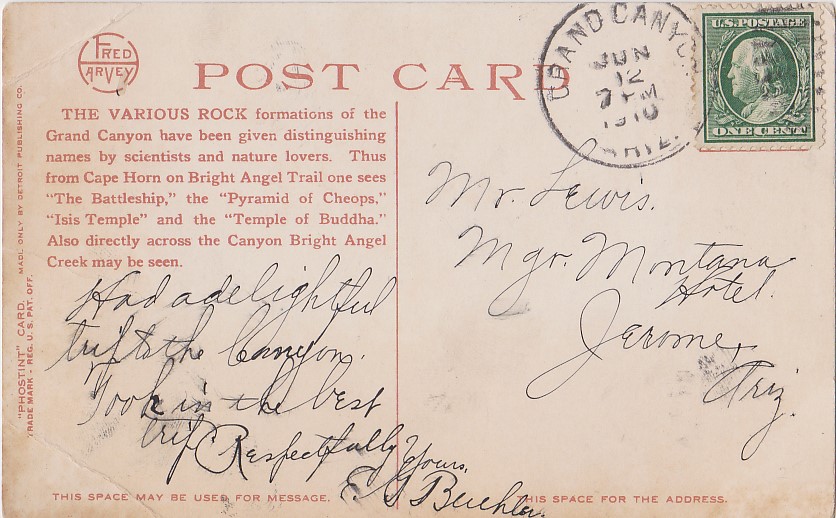 FRED
HARVEY
POST CARD
GRAND CANYON
JUN
12
7 PM
1910
ARIZ.
U.S. POSTAGE
ONE CENT
THE VARIOUS ROCK formations of the
Grand Canyon have been given distinguishing
names by scientists and nature lovers. Thus
from Cape Horn on Bright Angel Trail one sees
"The Battleship," the "Pyramid of Cheops,"
"Isis Temple" and the "Temple of Buddha."
Also directly across the Canyon Bright Angel
Creek may be seen.
Had a delightful
trip to the Canyon.
Took in the best
trip
Respectfully Yours,
Buehler.
Mr. Lewis.
Mgr. Montana
Hotel.
Jerome,
Ariz.
"PHOSTINT" CARD. MADE ONLY BY DETROIT PUBLISHING CO.
TRADE MARK - REG. U.S. PAT. OFF.
THIS SPACE MAY BE USED FOR MESSAGE.
THIS SPACE FOR THE ADDRESS.